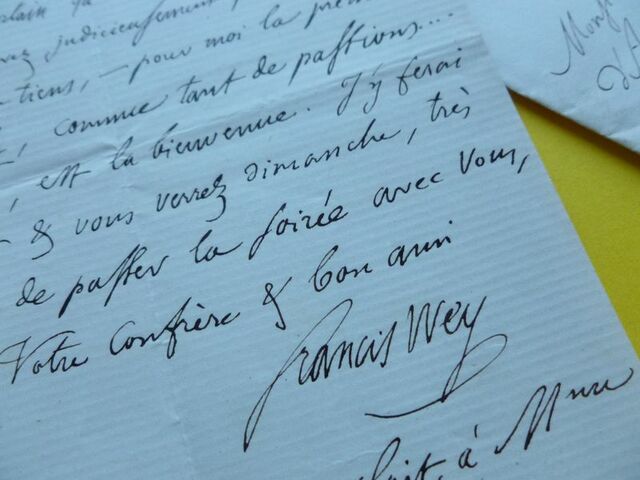 judicieusement
tiens, — pour moi la prem
, comme tant de passions...
est la bienvenue. J'y ferai
& vous verrez dimanche, très
de passer la soirée avec vous,
Votre confrère & bon ami
Francis Wey
, à Mme